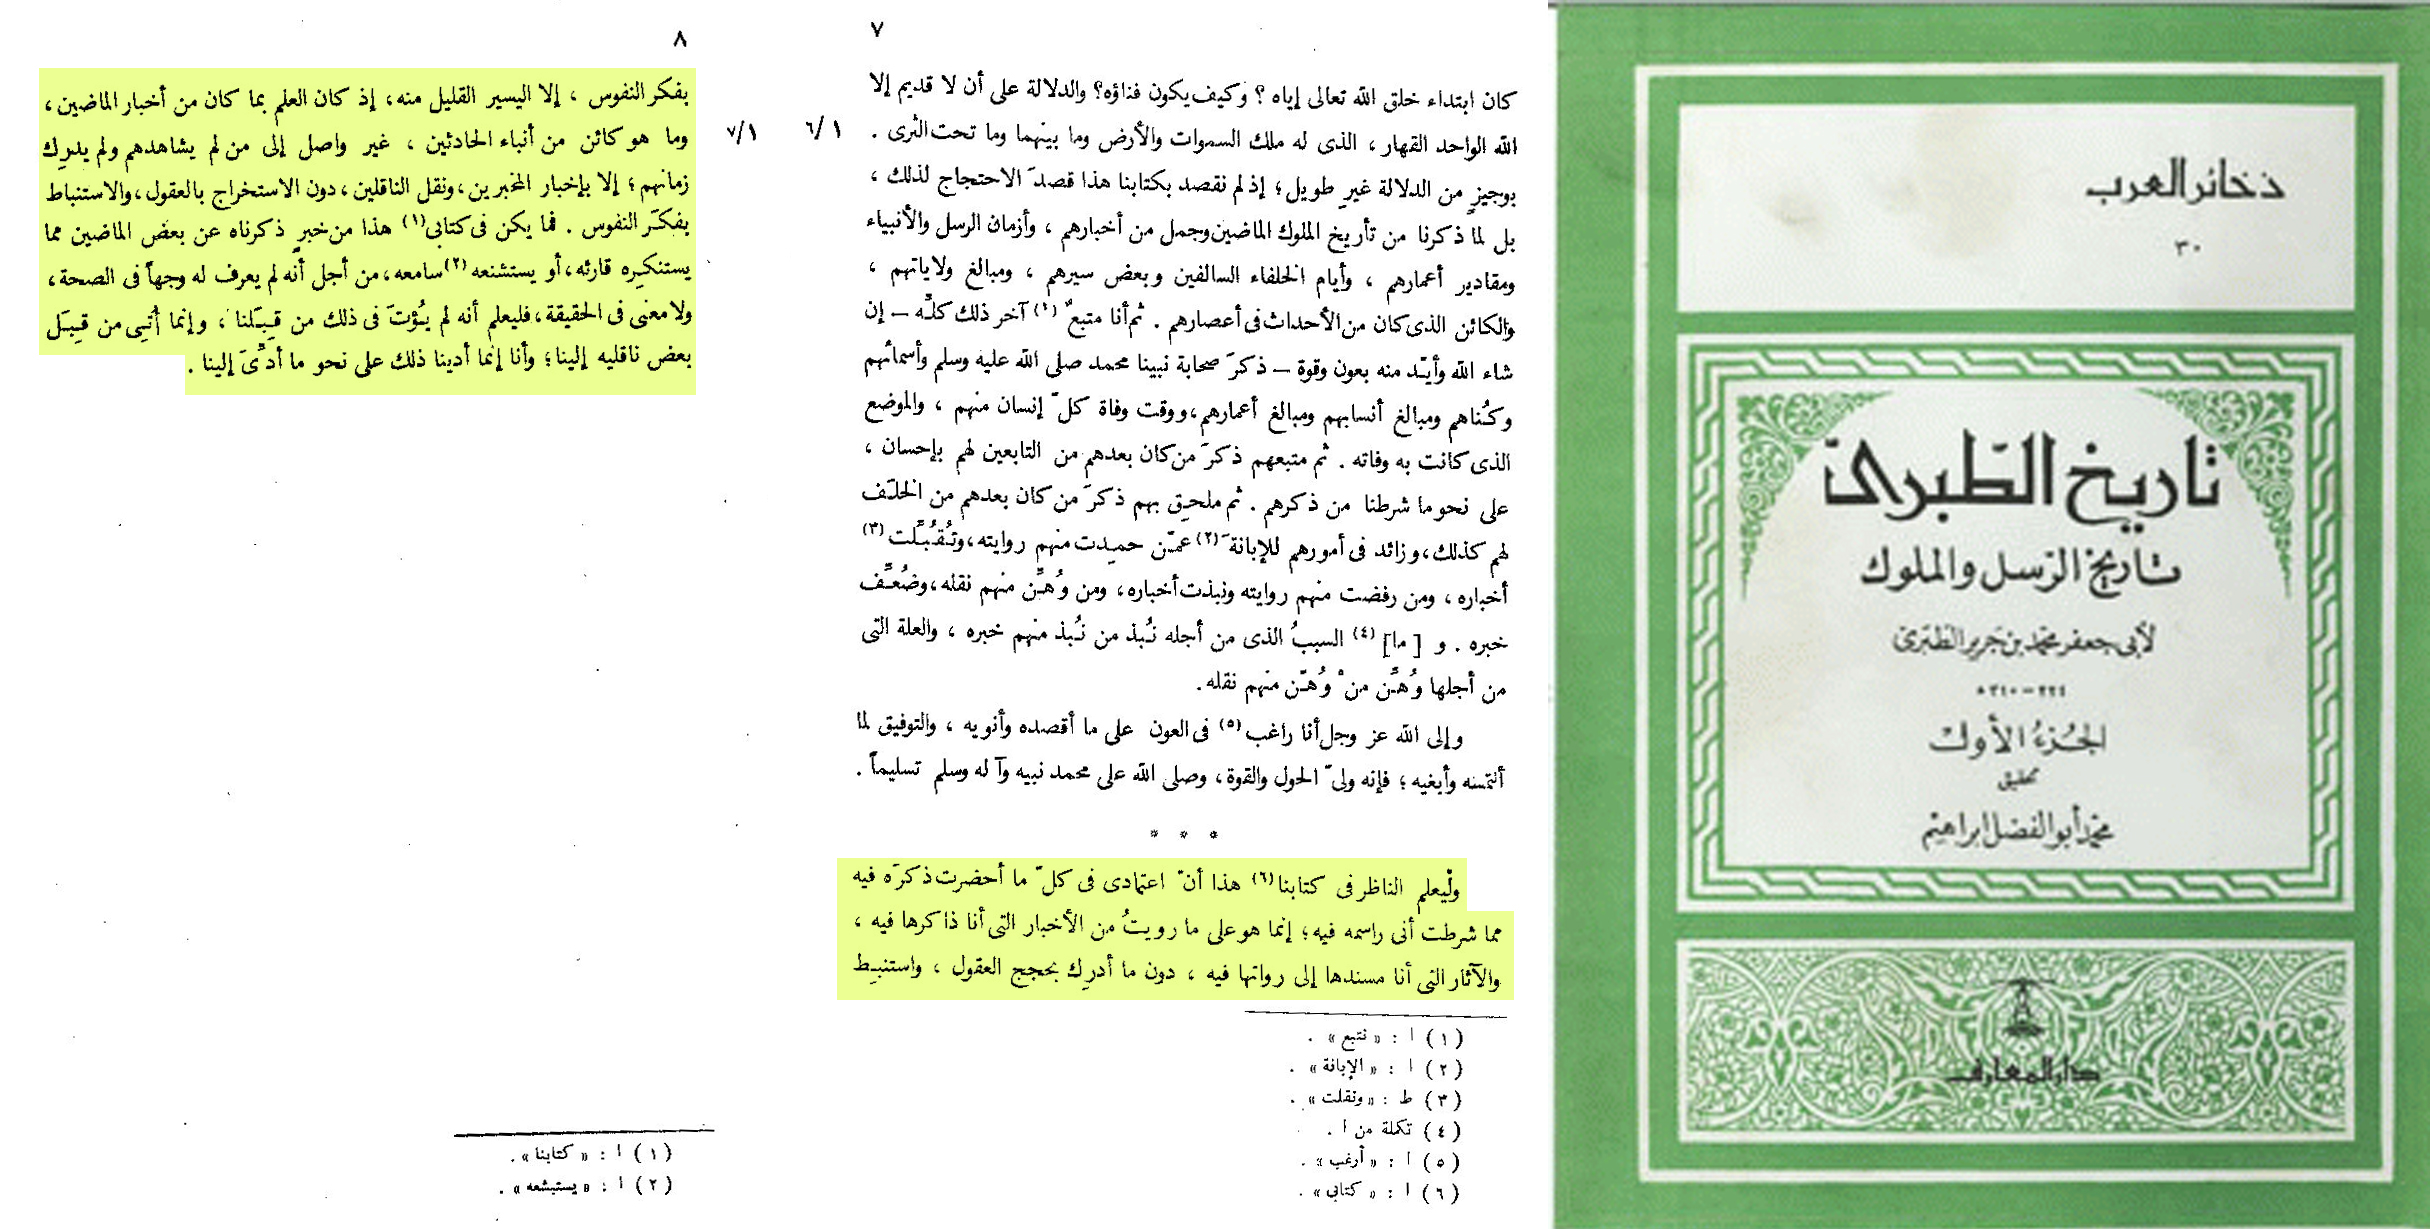 ذخائر العرب
٣٠
تاريخ الطبرى
تاريخ الرسل والملوك
لأبى جعفر محمد بن جرير الطبرى
٢٢٤ – ٣١٠ ه
الجزء الأول
تحقيق
محمد أبو الفضل إبراهيم
دار المعارف
٧
كان ابتداء خلق الله تعالى إياه ؟ وكيف يكون فناؤه؟ والدلالة على أن لا قديم إلا
الله الواحد القهار ، الذى له ملك السموات والأرض وما بينهما وما تحت الثرى . ٦/١
بوجيزٍ من الدلالة غير طويل؛ إذ لم نقصد بكتابنا هذا قصدَ الاحتجاج لذلك ،
بل لما ذكرنا من تأريخ الملوك الماضين وجمل من أخبارهم ، وأزمان الرسل والأنبياء
ومقادير أعمارهم ، وأيام الخلفاء السالفين وبعض سيرهم ، ومبالغ ولاياتهم ،
والكائن الذى كان من الأحداث فى أعصارهم . ثم أنا متبعٌ (١) آخر ذلك كلِّه – إن
شاء الله وأيّد منه بعون وقوة – ذكرَ صحابة نبينا محمد صلى الله عليه وسلم وأسمائهم
وكُناهم ومبالغ أنسابهم ومبالغ أعمارهم، ووقت وفاة كلّ إنسان منهم ، والموضع
الذى كانت به وفاته . ثم متبعهم ذكرَ من كان بعدهم من التابعين لهم بإحسان ،
على نحو ما شرطنا من ذكرهم . ثم ملحِق بهم ذكرَ من كان بعدهم من الخلَف
لهم كذلك، وزائد فى أمورهم للإبانة (٢) عمّن حمِدت منهم روايته، وتُقُبِّلت (٣)
أخباره ، ومن رفضت منهم روايته ونبذت أخباره، ومن وُهِّن منهم نقله، وضُعِّف
خبره . و [ ما] (٤) السببُ الذى من أجله نُبذ من نُبذ منهم خبره ، والعلة التى
من أجلها وُهِّن منْ وُهّن منهم نقله.
وإلى الله عز وجل أنا راغب (٥) فى العون على ما أقصده وأنويه ، والتوفيق لما
ألتمسه وأبغيه ؛ فإنه ولىّ الحول والقوة، وصلى الله على محمد نبيه وآله وسلم تسليماً .
* * *
ولْيعلم الناظر فى كتابنا (٦) هذا أنّ اعتمادى فى كلّ ما أحضرت ذكرَه فيه
مما شرطت أنى راسمه فيه؛ إنما هو على ما رويتُ من الأخبار التى أنا ذاكرها فيه ،
والآثار التى أنا مسندها إلى رواتها فيه ، دون ما أدرِك بحجج العقول ، واستنبِط
(١) ا : « نتبع» .
(٢) ا : « الإبانة» .
(٣) ط : «ونقلت» .
(٤) تكملة من ا .
(٥) ا : « أرغب» .
(٦) ا : « كتابى» .
٨
بفكر النفوس ، إلا اليسير القليل منه، إذ كان العلم بما كان من أخبار الماضين،
وما هو كائن من أنباء الحادثين ، غير واصل إلى من لم يشاهدهم ولم يدرِك ٧/١
زمانهم؛ إلا بإخبار المخبرين، ونقل الناقلين، دون الاستخراج بالعقول، والاستنباط
بفكَر النفوس . فما يكن فى كتابى (١) هذا من خبرٍ ذكرناه عن بعض الماضين مما
يستنكِره قارئه، أو يستشنعه (٢) سامعه، من أجل أنه لم يعرف له وجهاً فى الصحة،
ولا معنى فى الحقيقة، فليعلم أنه لم يُؤتَ فى ذلك من قِبَلنا ، وإنما أُتِى من قِبَل
بعض ناقليه إلينا؛ وأنا إنما أدينا ذلك على نحو ما أدِّىَ إلينا .
(١) ا : « كتابنا» .
(٢) ا : « يستبشعه» .